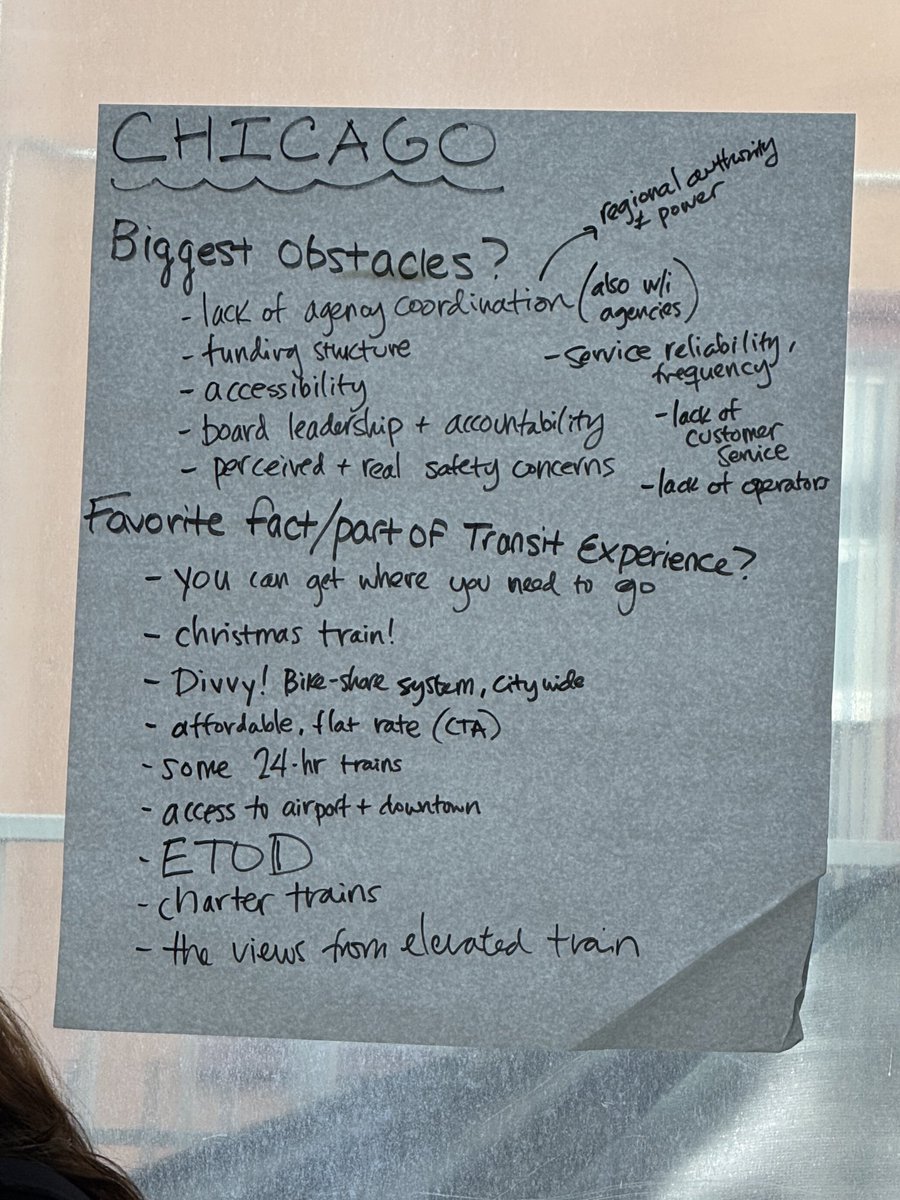 CHICAGO
regional authority
+ power
Biggest obstacles?
- lack of agency coordination (also w/i agencies)
- funding stucture
- accessibility
- board leadership + accountability
- perceived + real safety concerns
- service reliability,
frequency
- lack of
customer
service
- lack of operators
Favorite fact/part of Transit Experience?
- you can get where you need to go
- christmas train!
- Divvy! Bike-share system, citywide
- affordable, flat rate (CTA)
- some 24-hr trains
- access to airport + downtown
- ETOD
- charter trains
- the views from elevated train